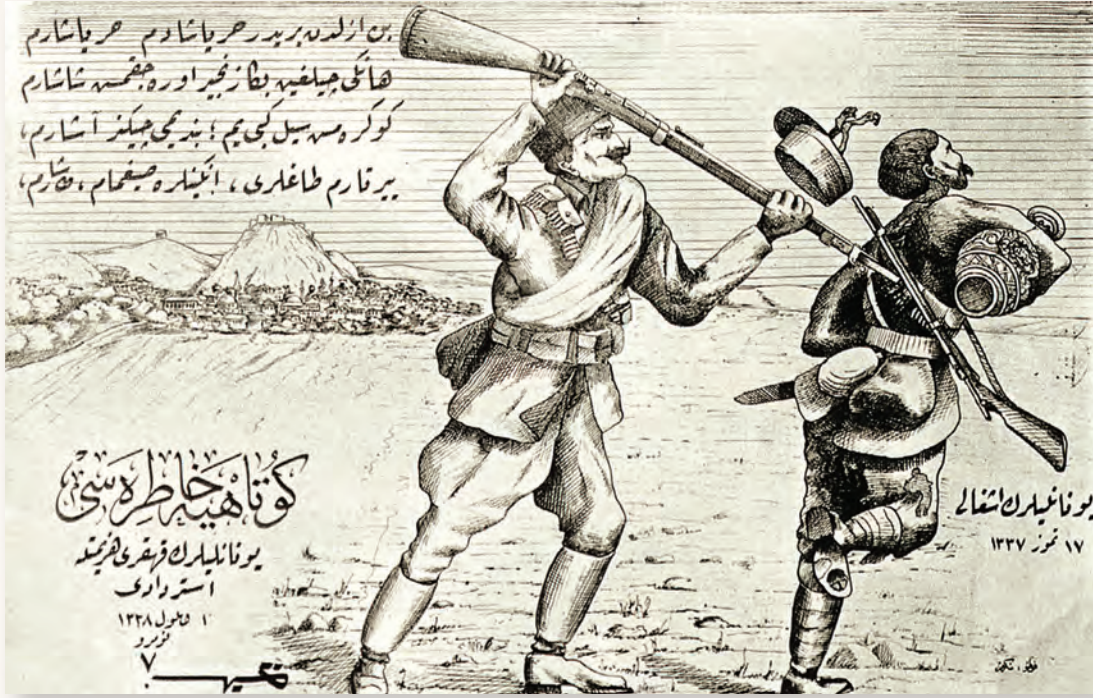 بن ازلدن بریدر حر یاشادم حر یاشارم
هانكی چیلغین بكا زنجیر اوره جقمش شاشارم
كوكره مش سیل كبی یم ؛ بندیمی چیكنر آشارم ،
ییرتارم طاغلری ، انكینلره صیغمام ، طاشارم ،
كوتاهیه خاطره سی
یونانلیلرك قهقری هزیمتله
استردادی
١ ایلول ١٣٣٨
نومرو
٧
یونانلیلرك اشغالی
١٧ تموز ١٣٣٧